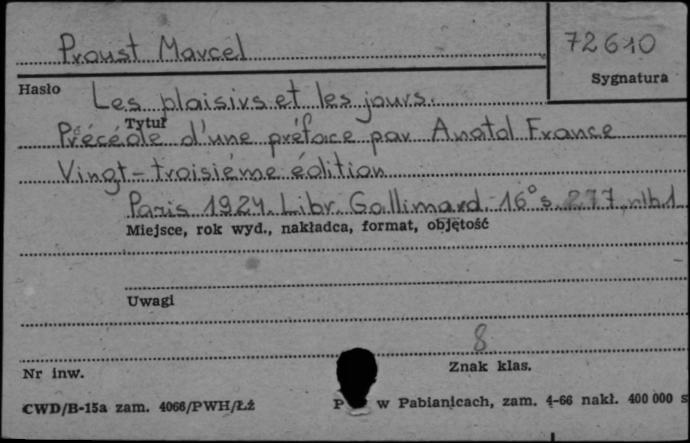 Proust Marcel
72610
Sygnatura
Hasło
Les plaisirs et les jours.
Tytuł
Précéde d'une préface par Anatol France
Vingt-troisiéme édition
Paris 1924 Libr. Gallimard. 16° s. 277, nlb.1
Miejsce, rok wyd., nakładca, format, objętość
Uwagi
8
Nr inw.
Znak klas.
CWD/B-15a zam. 4066/PWH/Łż
P w Pabianicach, zam. 4-66 nakł. 400 000 s